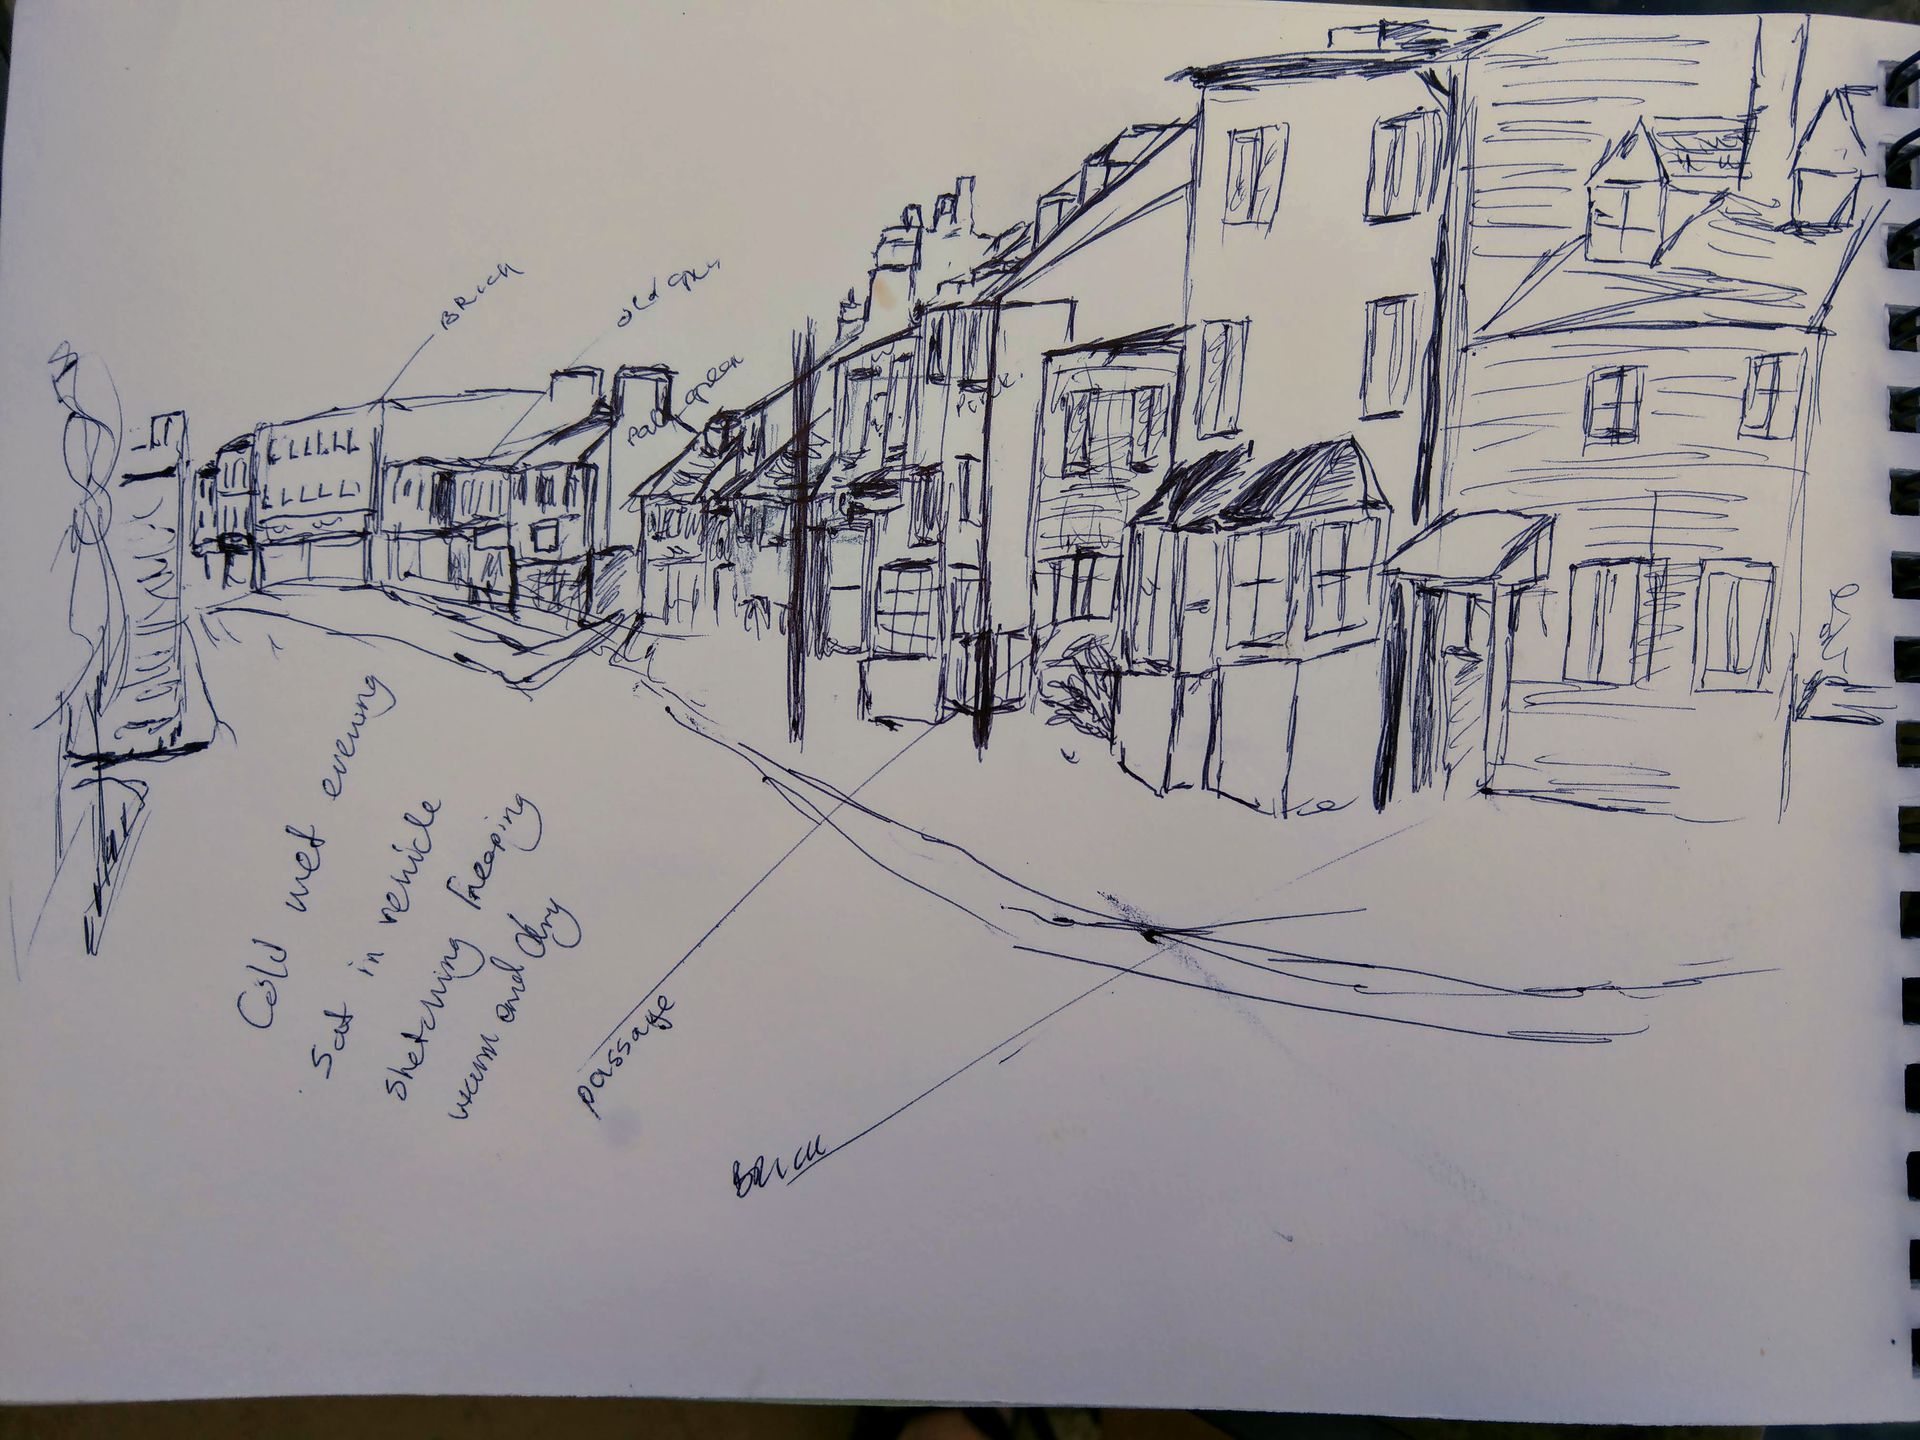 Brick
old
Pale green
Pink.
Cold wet evening
Sat in vehicle
sketching keeping
warm and dry
passage
Brick